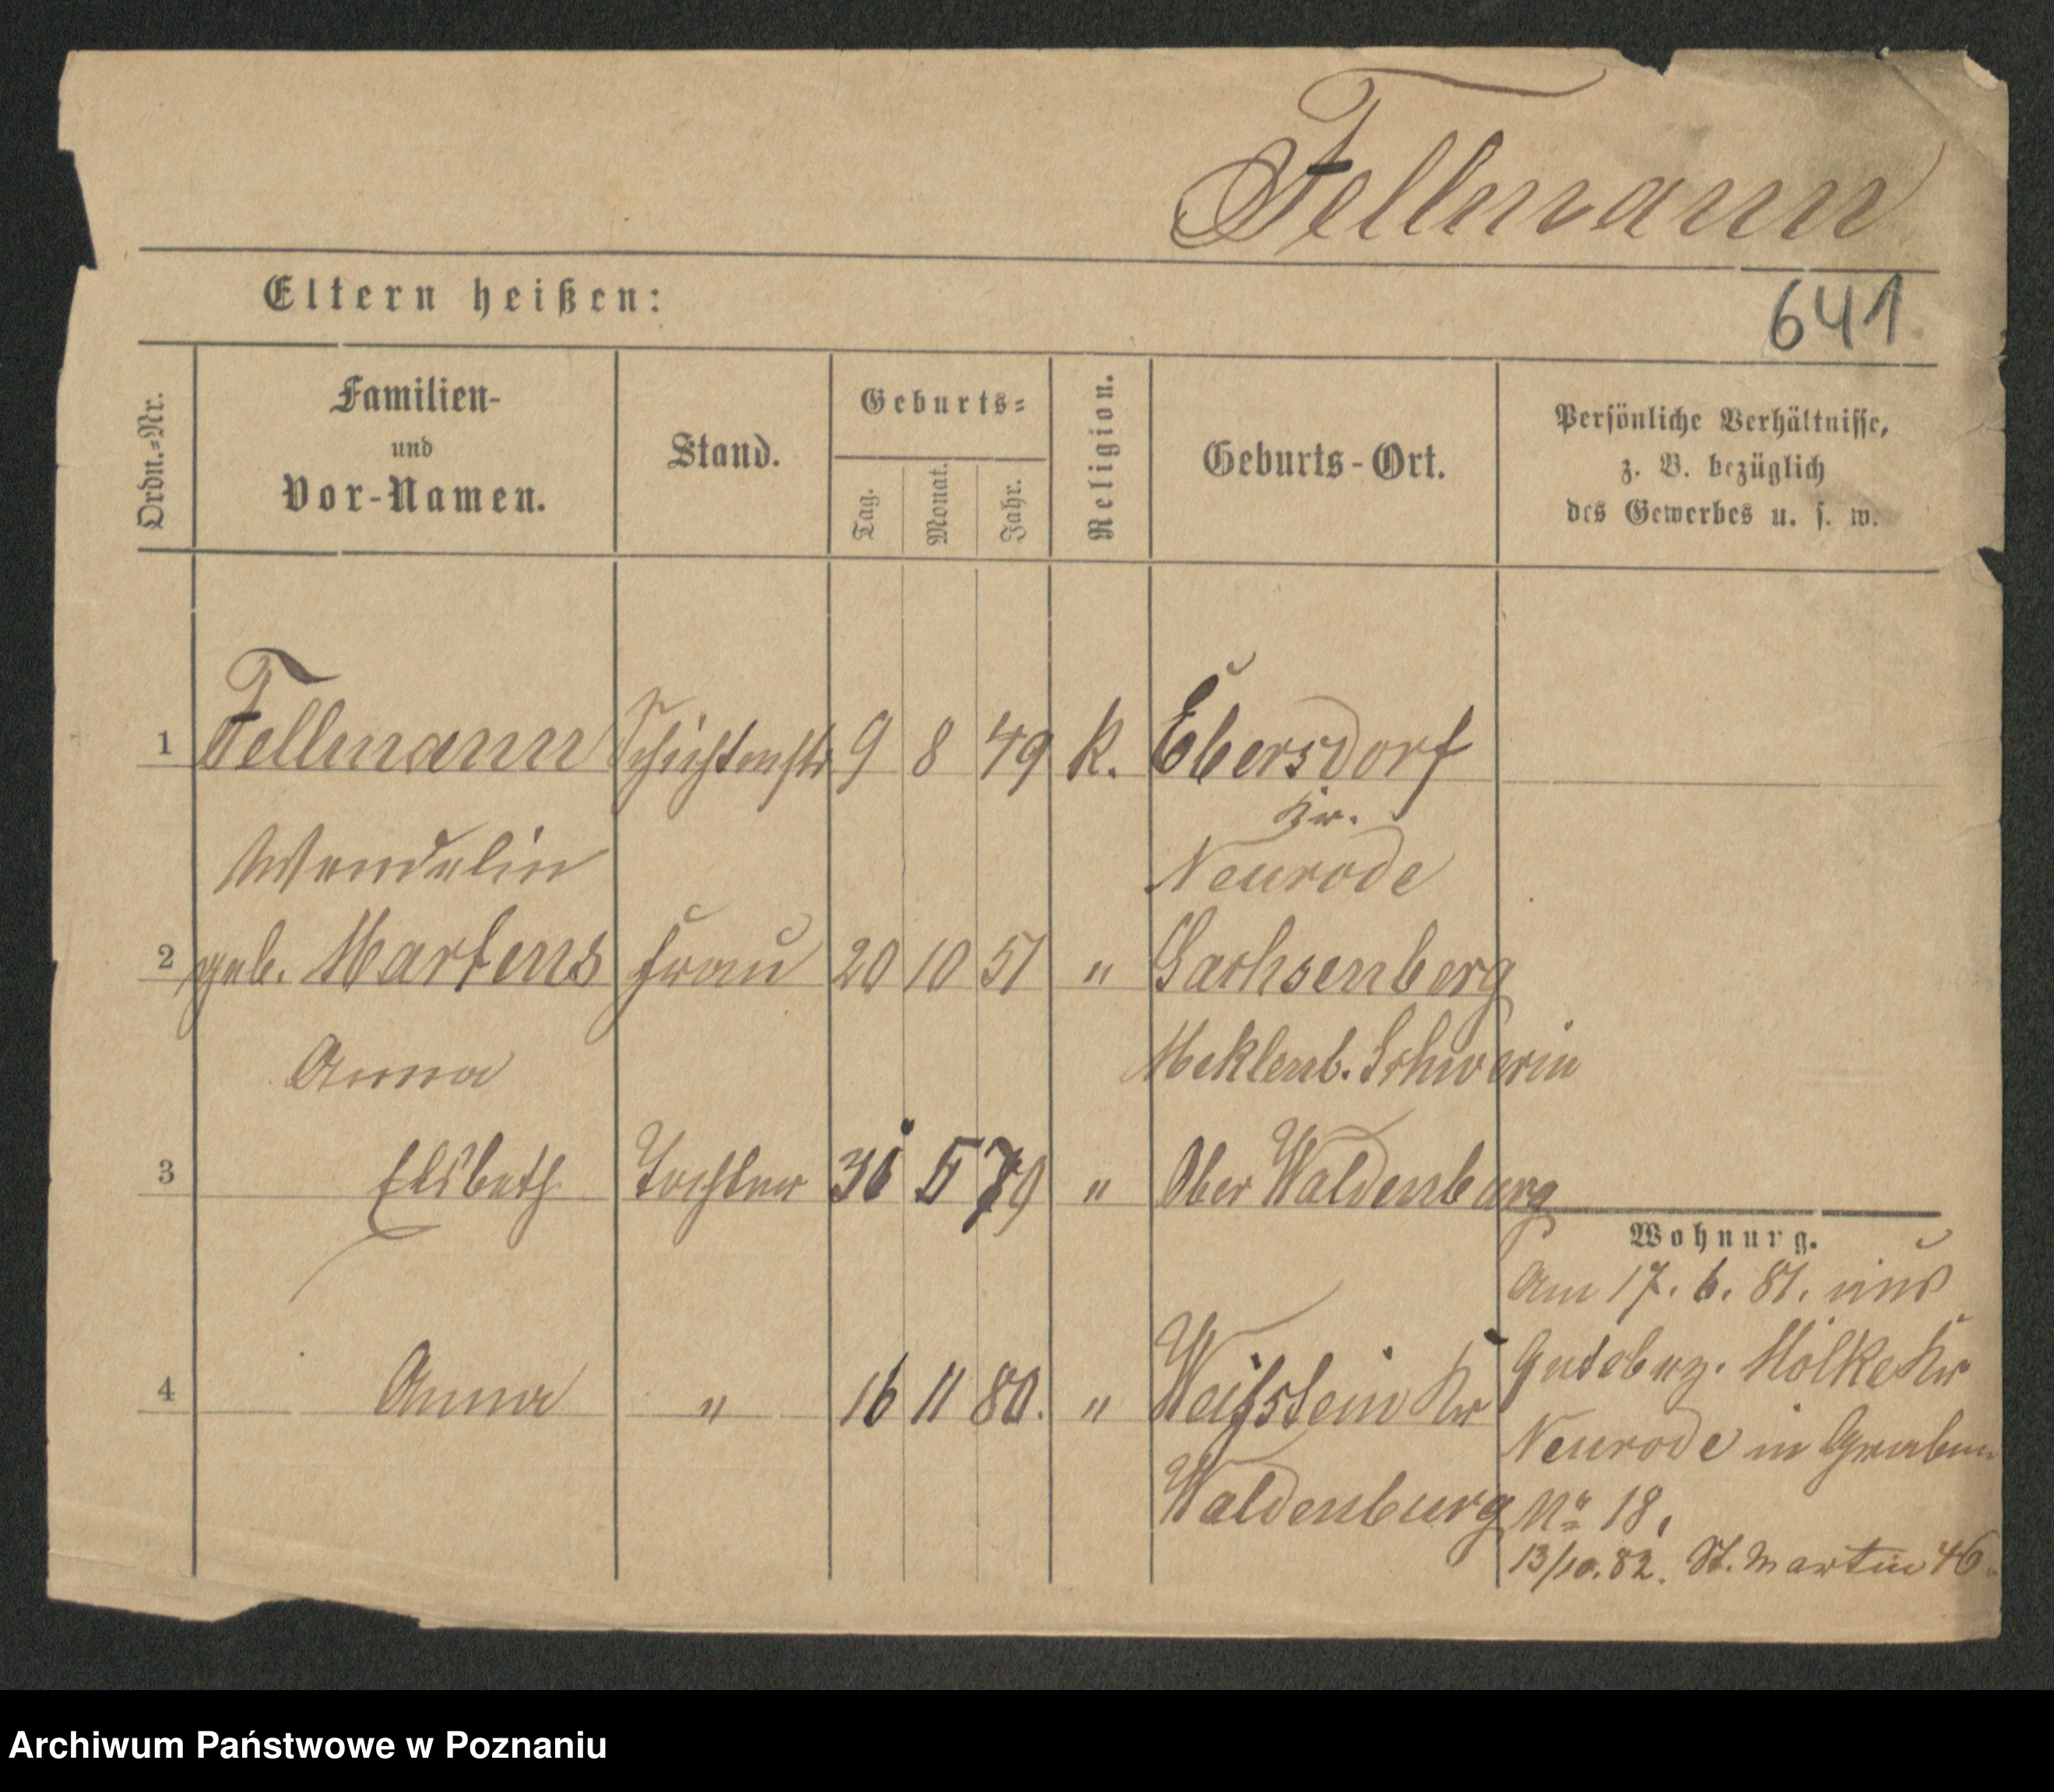 Fellmann
Eltern heißen:
641
Ordn.=Nr.
Familien-
und
Vor-Namen.
Stand.
Geburts=
Tag.
Monat.
Jahr.
Religion.
Geburts-Ort.
Persönliche Verhältnisse,
z. B. bezüglich
des Gewerbes u. s. w.
1 Fellmann 9 8 49 K. Ebersdorf
Kr.
Wendelin Neurode
2 geb. Martens Frau 20 10 51 " Sachsenberg
Anna Meklenb. Schwerin
3 Elsbeth Tochter 5 79 " Ober Waldenburg
Wohnung.
Am 17. 6. 81. aus
4 Anna " 16 11 80. " Weifsstein Kr
Waldenburg
Gutsbez. Mölke Kr
Neurode in Graben
No 18.
13/10.82. St. Martin 46
Archiwum Państwowe w Poznaniu